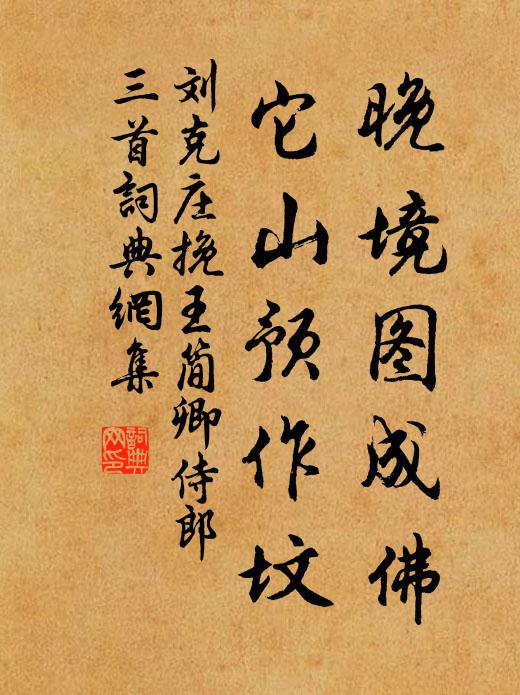 晚境图成佛
它山预作坟
刘克庄挽王简卿侍郎
三首詞典網集
詞典网印